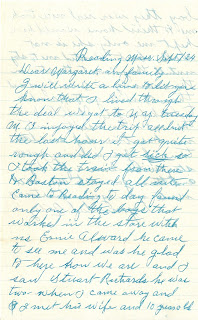 Reading Mass. Sept 1/24
Dear Margaret and family
I will write a line to let you
know that I lived through
the deal we got to Yar tuesday
M. I enjoyed the trip all but
the last hour it got quite
rough and did I get sick so
I took the train from there
to Boston stayed all nite
Came to Reading to day found
only one of the boys that
worked in the store with
me Ernie Alward he came
to see me and was he glad
to here how we are and I
saw Stuart Richards he was
two when I came away and
I met his wife and 10 years old